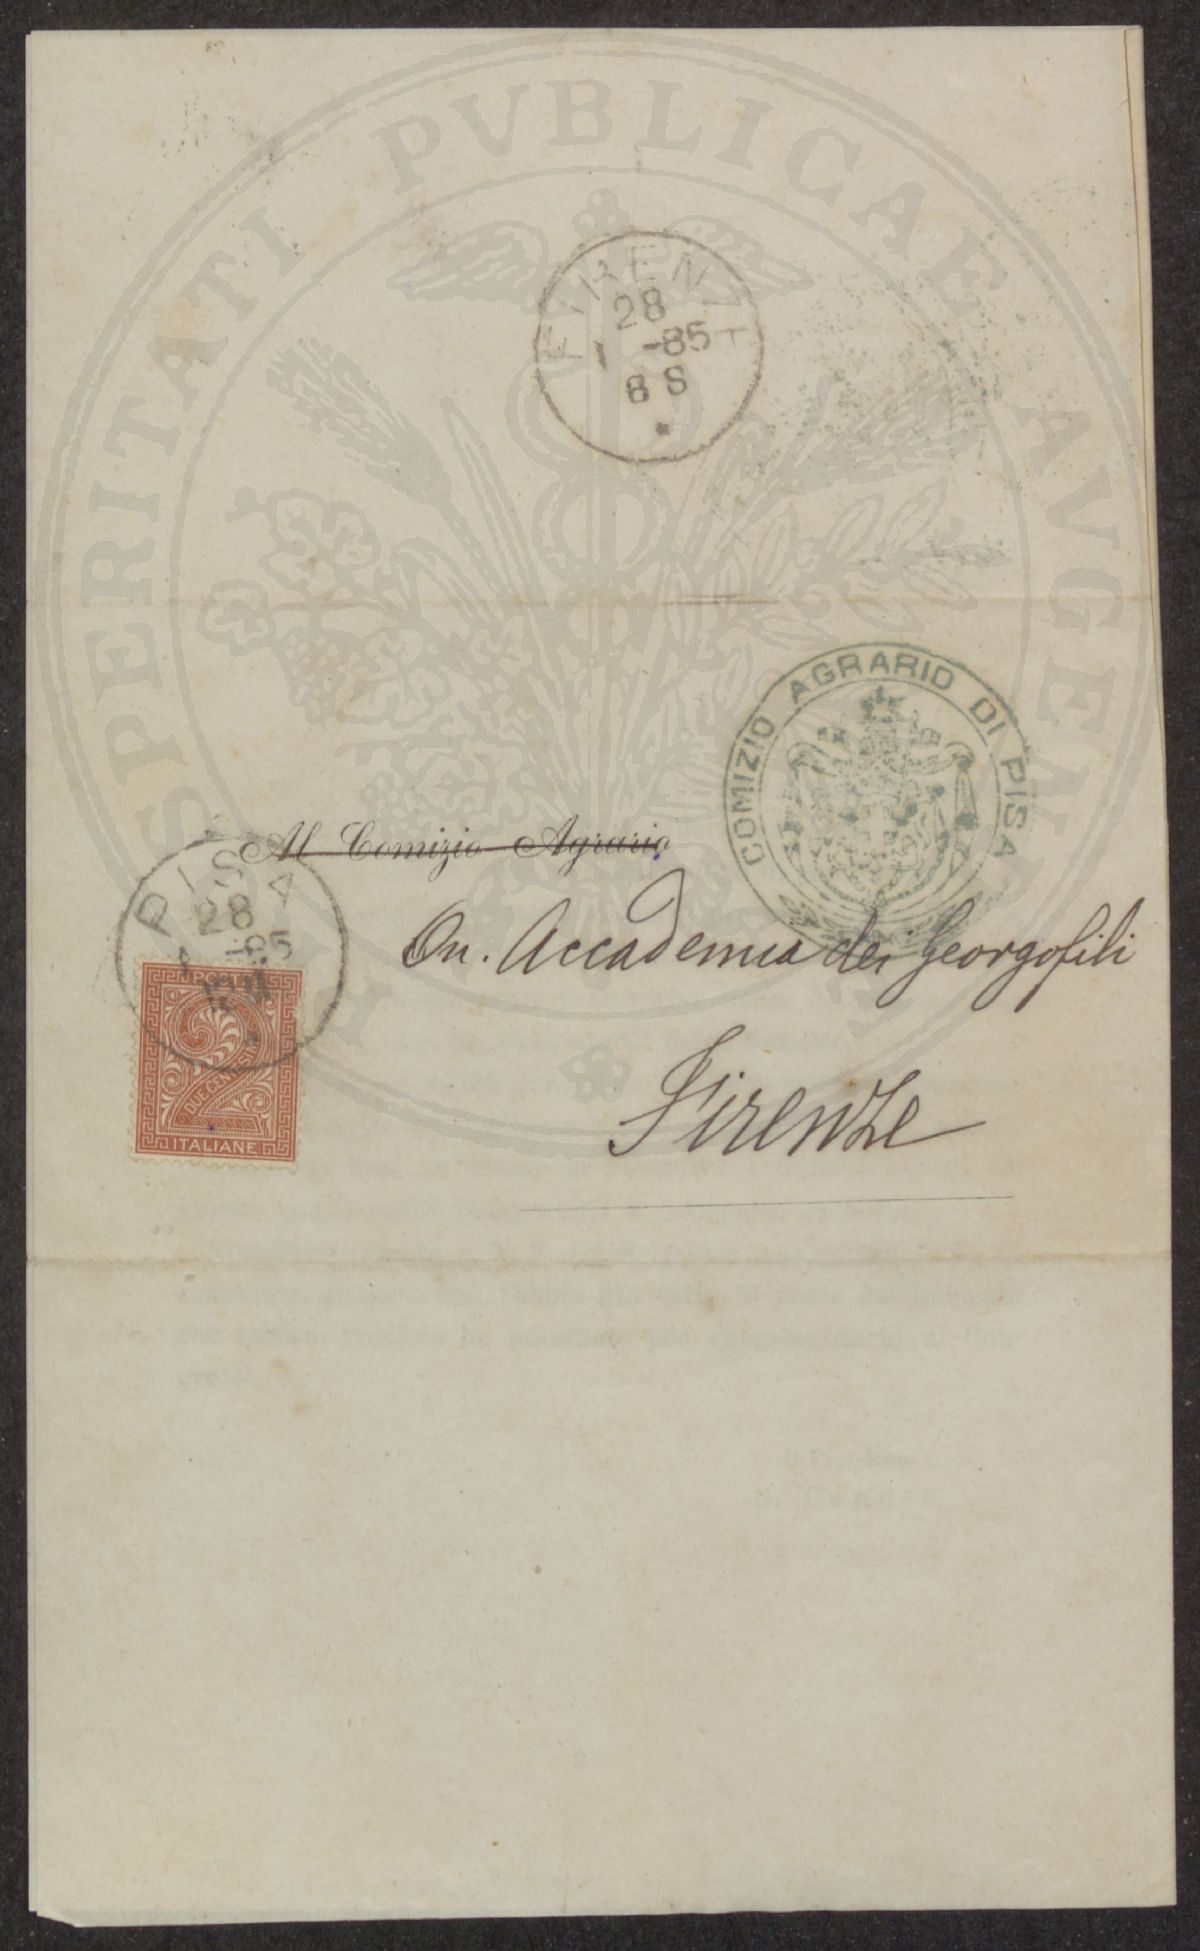 PROSPERITATI PVBLICAE AVGENDAE
FIRENZE
28
1 -85
8 S
COMIZIO AGRARIO DI PISA
Al Comizio Agrario
PISA
28
1 -85
On. Accademia dei Georgofili
Firenze
POSTE
DUE CENTESIMI
ITALIANE